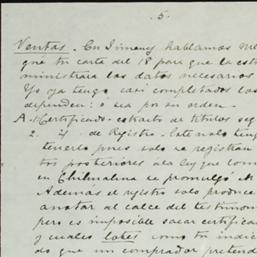 .5.
Ventas. En Jimenez hablamos
que tu carte del 18 para que la
ministrara los datos necesarios
Yo ya tengo casi completados los
dependen: ó sea por su orden.
A. Certificado= extracto de titulos
2. id. de Registro. Este no lo
tenerlo pues solo se registran
tos posteriores a la ley que
en Chihuahua se promulgó
Además el registro solo produce
anotar al calce del testimon
pero es imposible sacar certifica
y cuales lotes como tu indic
do que un comprador pretend